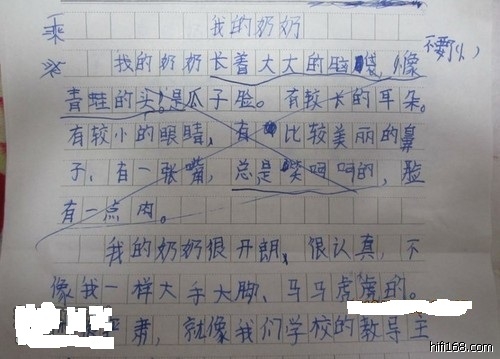 乘 我的奶奶
我的奶奶长着大大的脑袋,像 不要
青蛙的头!是瓜子脸。有较长的耳朵。
有较小的眼睛,有比较美丽的鼻
子,有一张嘴,总是笑呵呵的,脸
有一点肉。
我的奶奶很开朗,很认真,不
像我一样大手大脚、马马虎虎的。
肃,就像我们学校的教导主
hifi168.com